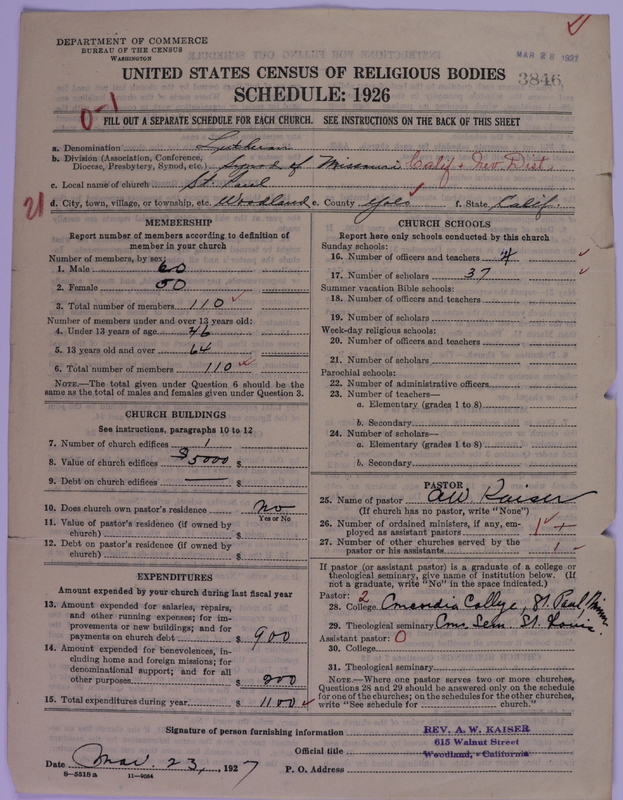 DEPARTMENT OF COMMERCE
BUREAU OF THE CENSUS
WASHINGTON
MAR 28 1927
UNITED STATES CENSUS OF RELIGIOUS BODIES
3846
SCHEDULE: 1926
0-1
FILL OUT A SEPARATE SCHEDULE FOR EACH CHURCH. SEE INSTRUCTIONS ON THE BACK OF THIS SHEET
a. Denomination Lutheran
b. Division (Association, Conference,
Diocese, Presbytery, Synod, etc.) Synod of Missouri Calif & Nev Dist.
c. Local name of church St. Paul
21 d. City, town, village, or township, etc. Woodland e. County Yolo f. State Calif.
MEMBERSHIP
Report number of members according to definition of
member in your church
Number of members, by sex:
1. Male 60
2. Female 50
3. Total number of members 110
Number of members under and over 13 years old:
4. Under 13 years of age 46
5. 13 years old and over 64
6. Total number of members 110
NOTE.—The total given under Question 6 should be the
same as the total of males and females given under Question 3.
CHURCH BUILDINGS
See instructions, paragraphs 10 to 12
7. Number of church edifices 1
8. Value of church edifices $5000 $
9. Debt on church edifices — $
10. Does church own pastor's residence No
Yes or No
11. Value of pastor's residence (if owned by
church) $
12. Debt on pastor's residence (if owned by
church) $
EXPENDITURES
Amount expended by your church during last fiscal year
13. Amount expended for salaries, repairs,
and other running expenses; for im-
provements or new buildings; and for
payments on church debt $ 900
14. Amount expended for benevolences, in-
cluding home and foreign missions; for
denominational support; and for all
other purposes $ 200
15. Total expenditures during year $ 1100
CHURCH SCHOOLS
Report here only schools conducted by this church
Sunday schools:
16. Number of officers and teachers 4
17. Number of scholars 37
Summer vacation Bible schools:
18. Number of officers and teachers
19. Number of scholars
Week-day religious schools:
20. Number of officers and teachers
21. Number of scholars
Parochial schools:
22. Number of administrative officers
23. Number of teachers—
a. Elementary (grades 1 to 8)
b. Secondary
24. Number of scholars—
a. Elementary (grades 1 to 8)
b. Secondary
PASTOR
25. Name of pastor A W Kaiser
(If church has no pastor, write "None")
26. Number of ordained ministers, if any, em-
ployed as assistant pastors
27. Number of other churches served by the
pastor or his assistants 1
If pastor (or assistant pastor) is a graduate of a college or
theological seminary, give name of institution below. (If
not a graduate, write "No" in the space indicated.)
Pastor: 2
28. College Concordia College, St. Paul, Minn.
29. Theological seminary Conc. Sem. St. Louis
Assistant pastor: 0
30. College
31. Theological seminary
NOTE.—Where one pastor serves two or more churches,
Questions 28 and 29 should be answered only on the schedule
for one of the churches; on the schedules for the other churches,
write "See schedule for church."
Signature of person furnishing information REV. A. W. KAISER
Official title 615 Walnut Street
Woodland, - California
Date Mar. 23, 1927 P. O. Address
8-5518 a 11-9084